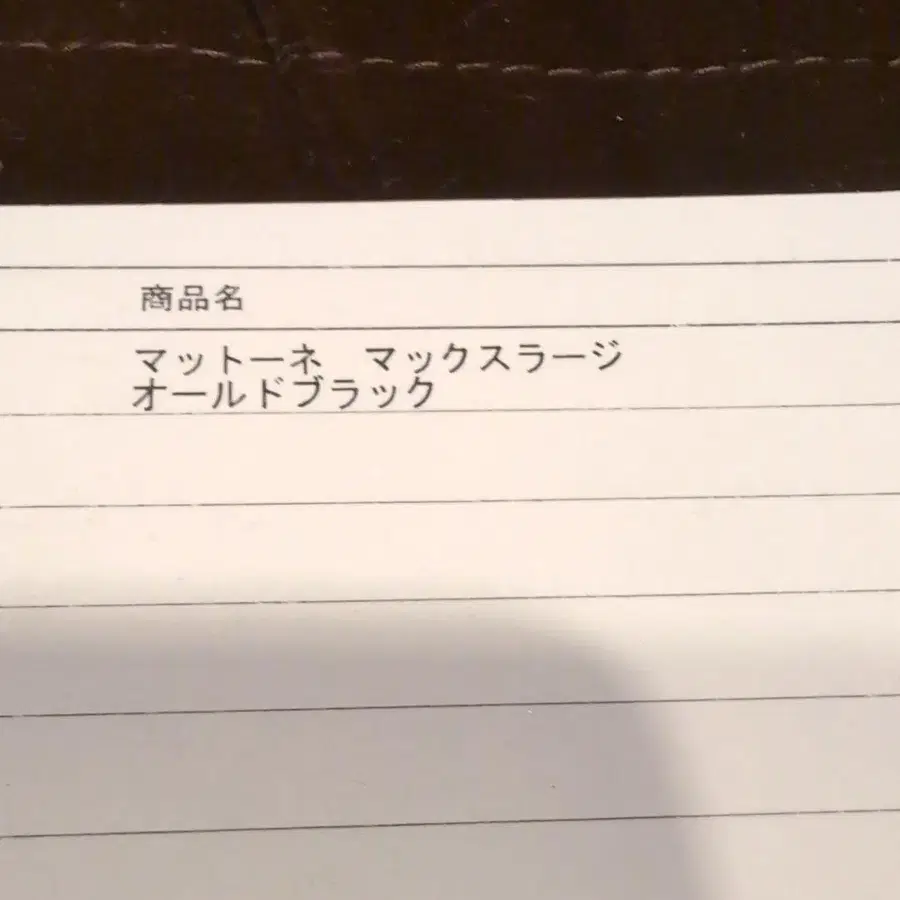 商品名
マットーネ　マックスラージ
オールドブラック